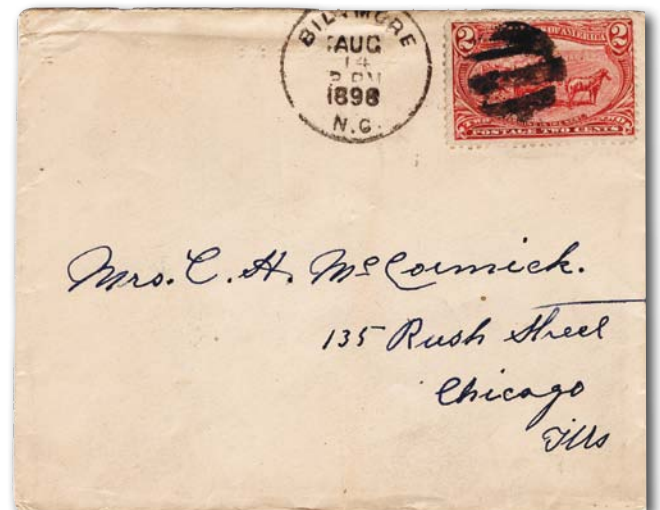 BILTMORE
AUG
14
1898
N.C.
2 OF AMERICA 2
POSTAGE TWO CENTS
Mrs. C. H. McCormick.
135 Rush Street
Chicago
Ills